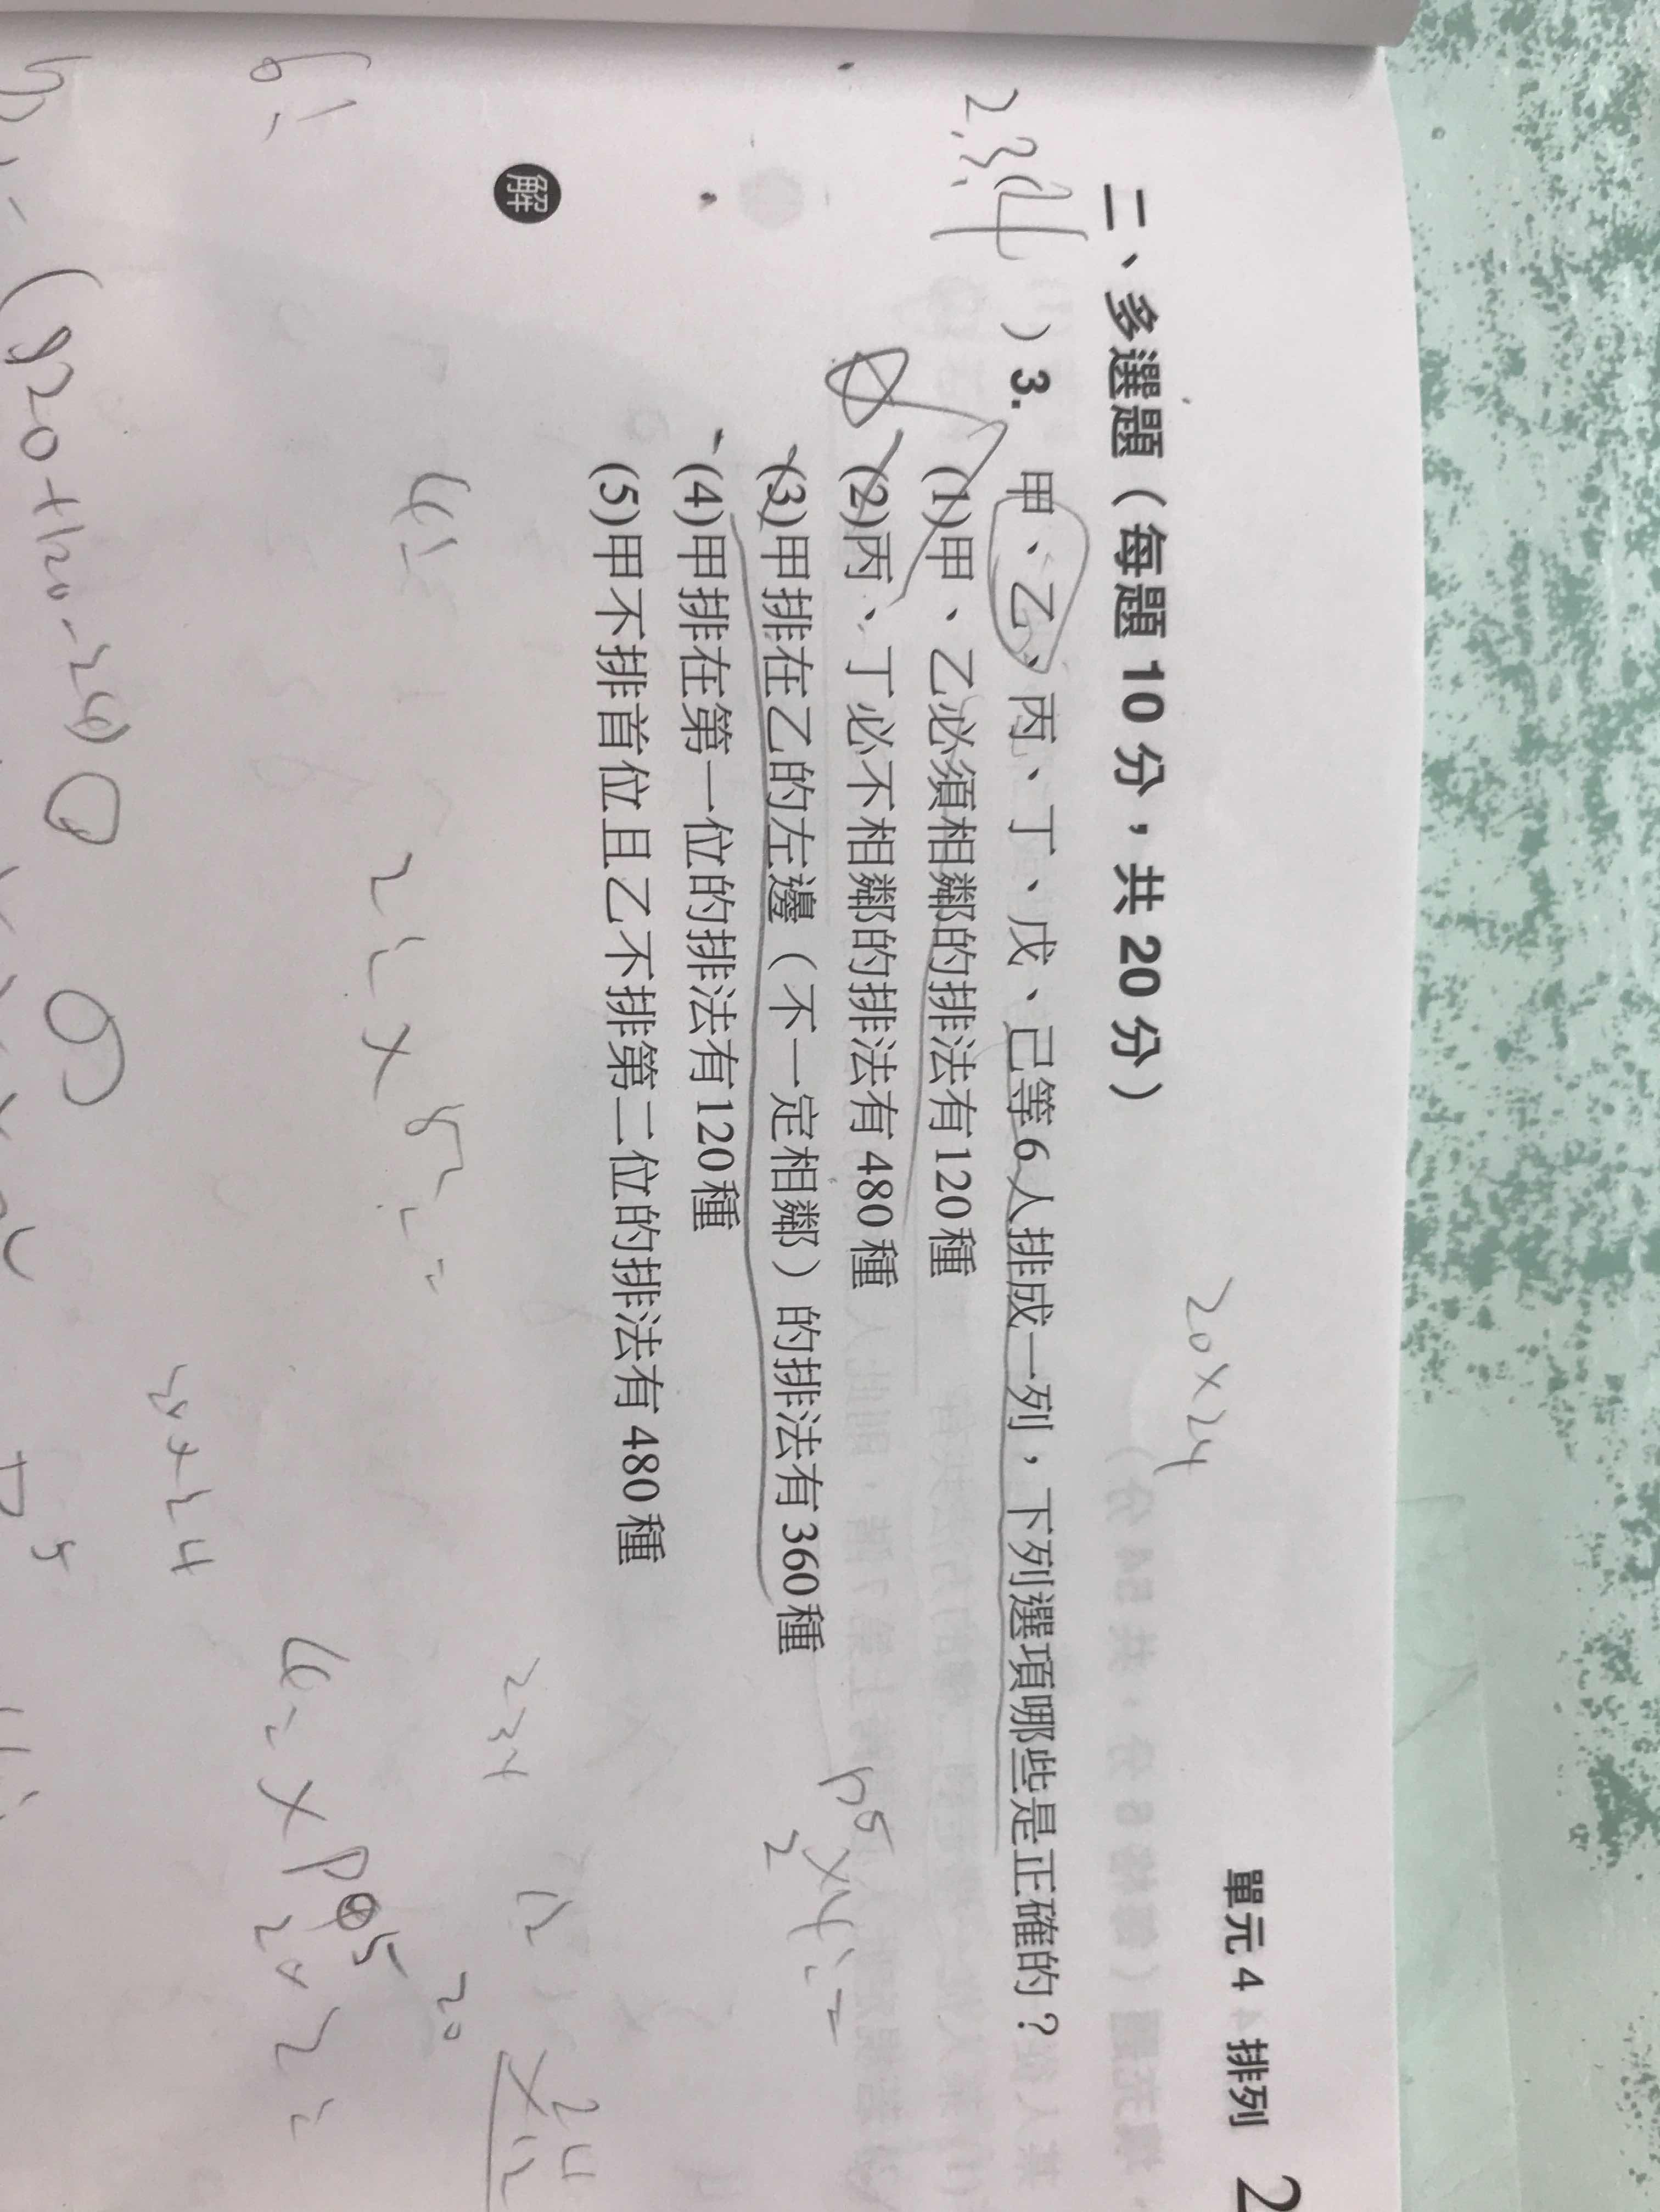 單元 4 排列 2
20×24
二、多選題（每題 10 分，共 20 分）
2.3.4 ）3. 甲、乙、丙、丁、戊、己等6人排成一列，下列選項哪些是正確的？
(1)甲、乙必須相鄰的排法有120種
(2)丙、丁必不相鄰的排法有480種
(3)甲排在乙的左邊（不一定相鄰）的排法有360種
(4)甲排在第一位的排法有120種
(5)甲不排首位且乙不排第二位的排法有480種
解
2! × 5! =
4! × P
20
(720+120-24)